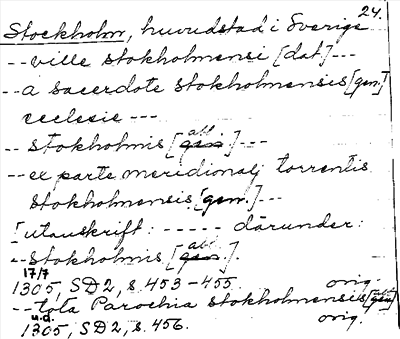 24.
Stockholm, huvudstad i Sverige
-- ville stokholmensi [dat] ---
-- a sacerdote stokholmensis [gen.]
ecclesie ---
-- stokholmis [gen. abl.] ---
-- ex parte meridionalj torrentis
stokholmensis [gen.] ---
[utanskrift: ----- därunder:
-- stokholmis [gen. abl.].
17/7
1305, SD2, s. 453-455. orig.
-- tota Parochia stokholmensis
u.d.
1305, SD2, s. 456. orig.